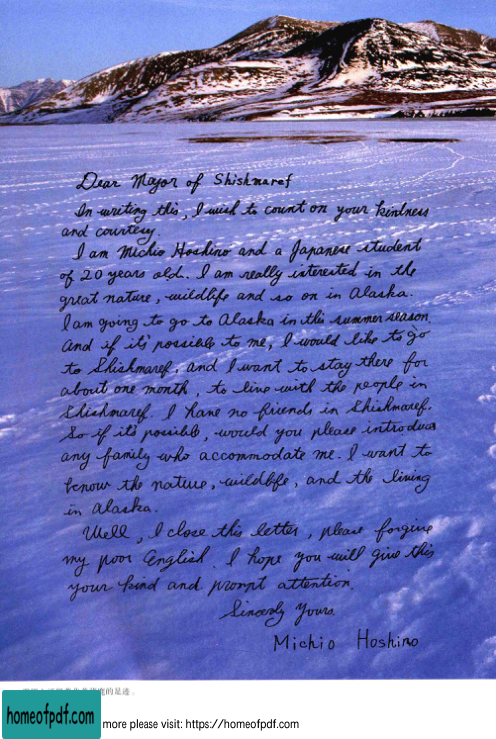 Dear Mayor of Shishmaref
In writing this, I wish to count on your kindness
and courtesy.
I am Michio Hoshino and a Japanese student
of 20 years old. I am really interested in the
great nature, wildlife and so on in Alaska.
I am going to go to Alaska in this summer season,
and if it's possible to me, I would like to go
to Shishmaref, and I want to stay there for
about one month, to live with the people in
Shishmaref. I have no friends in Shishmaref.
So if it's possible, would you please introduce
any family who accommodate me. I want to
know the nature, wildlife, and the living
in Alaska.
Well, I close this letter, please forgive
my poor English. I hope you will give this
your kind and prompt attention.
Sincerely Yours,
Michio Hoshino
的足迹。
homeofpdf.com
more please visit: https://homeofpdf.com